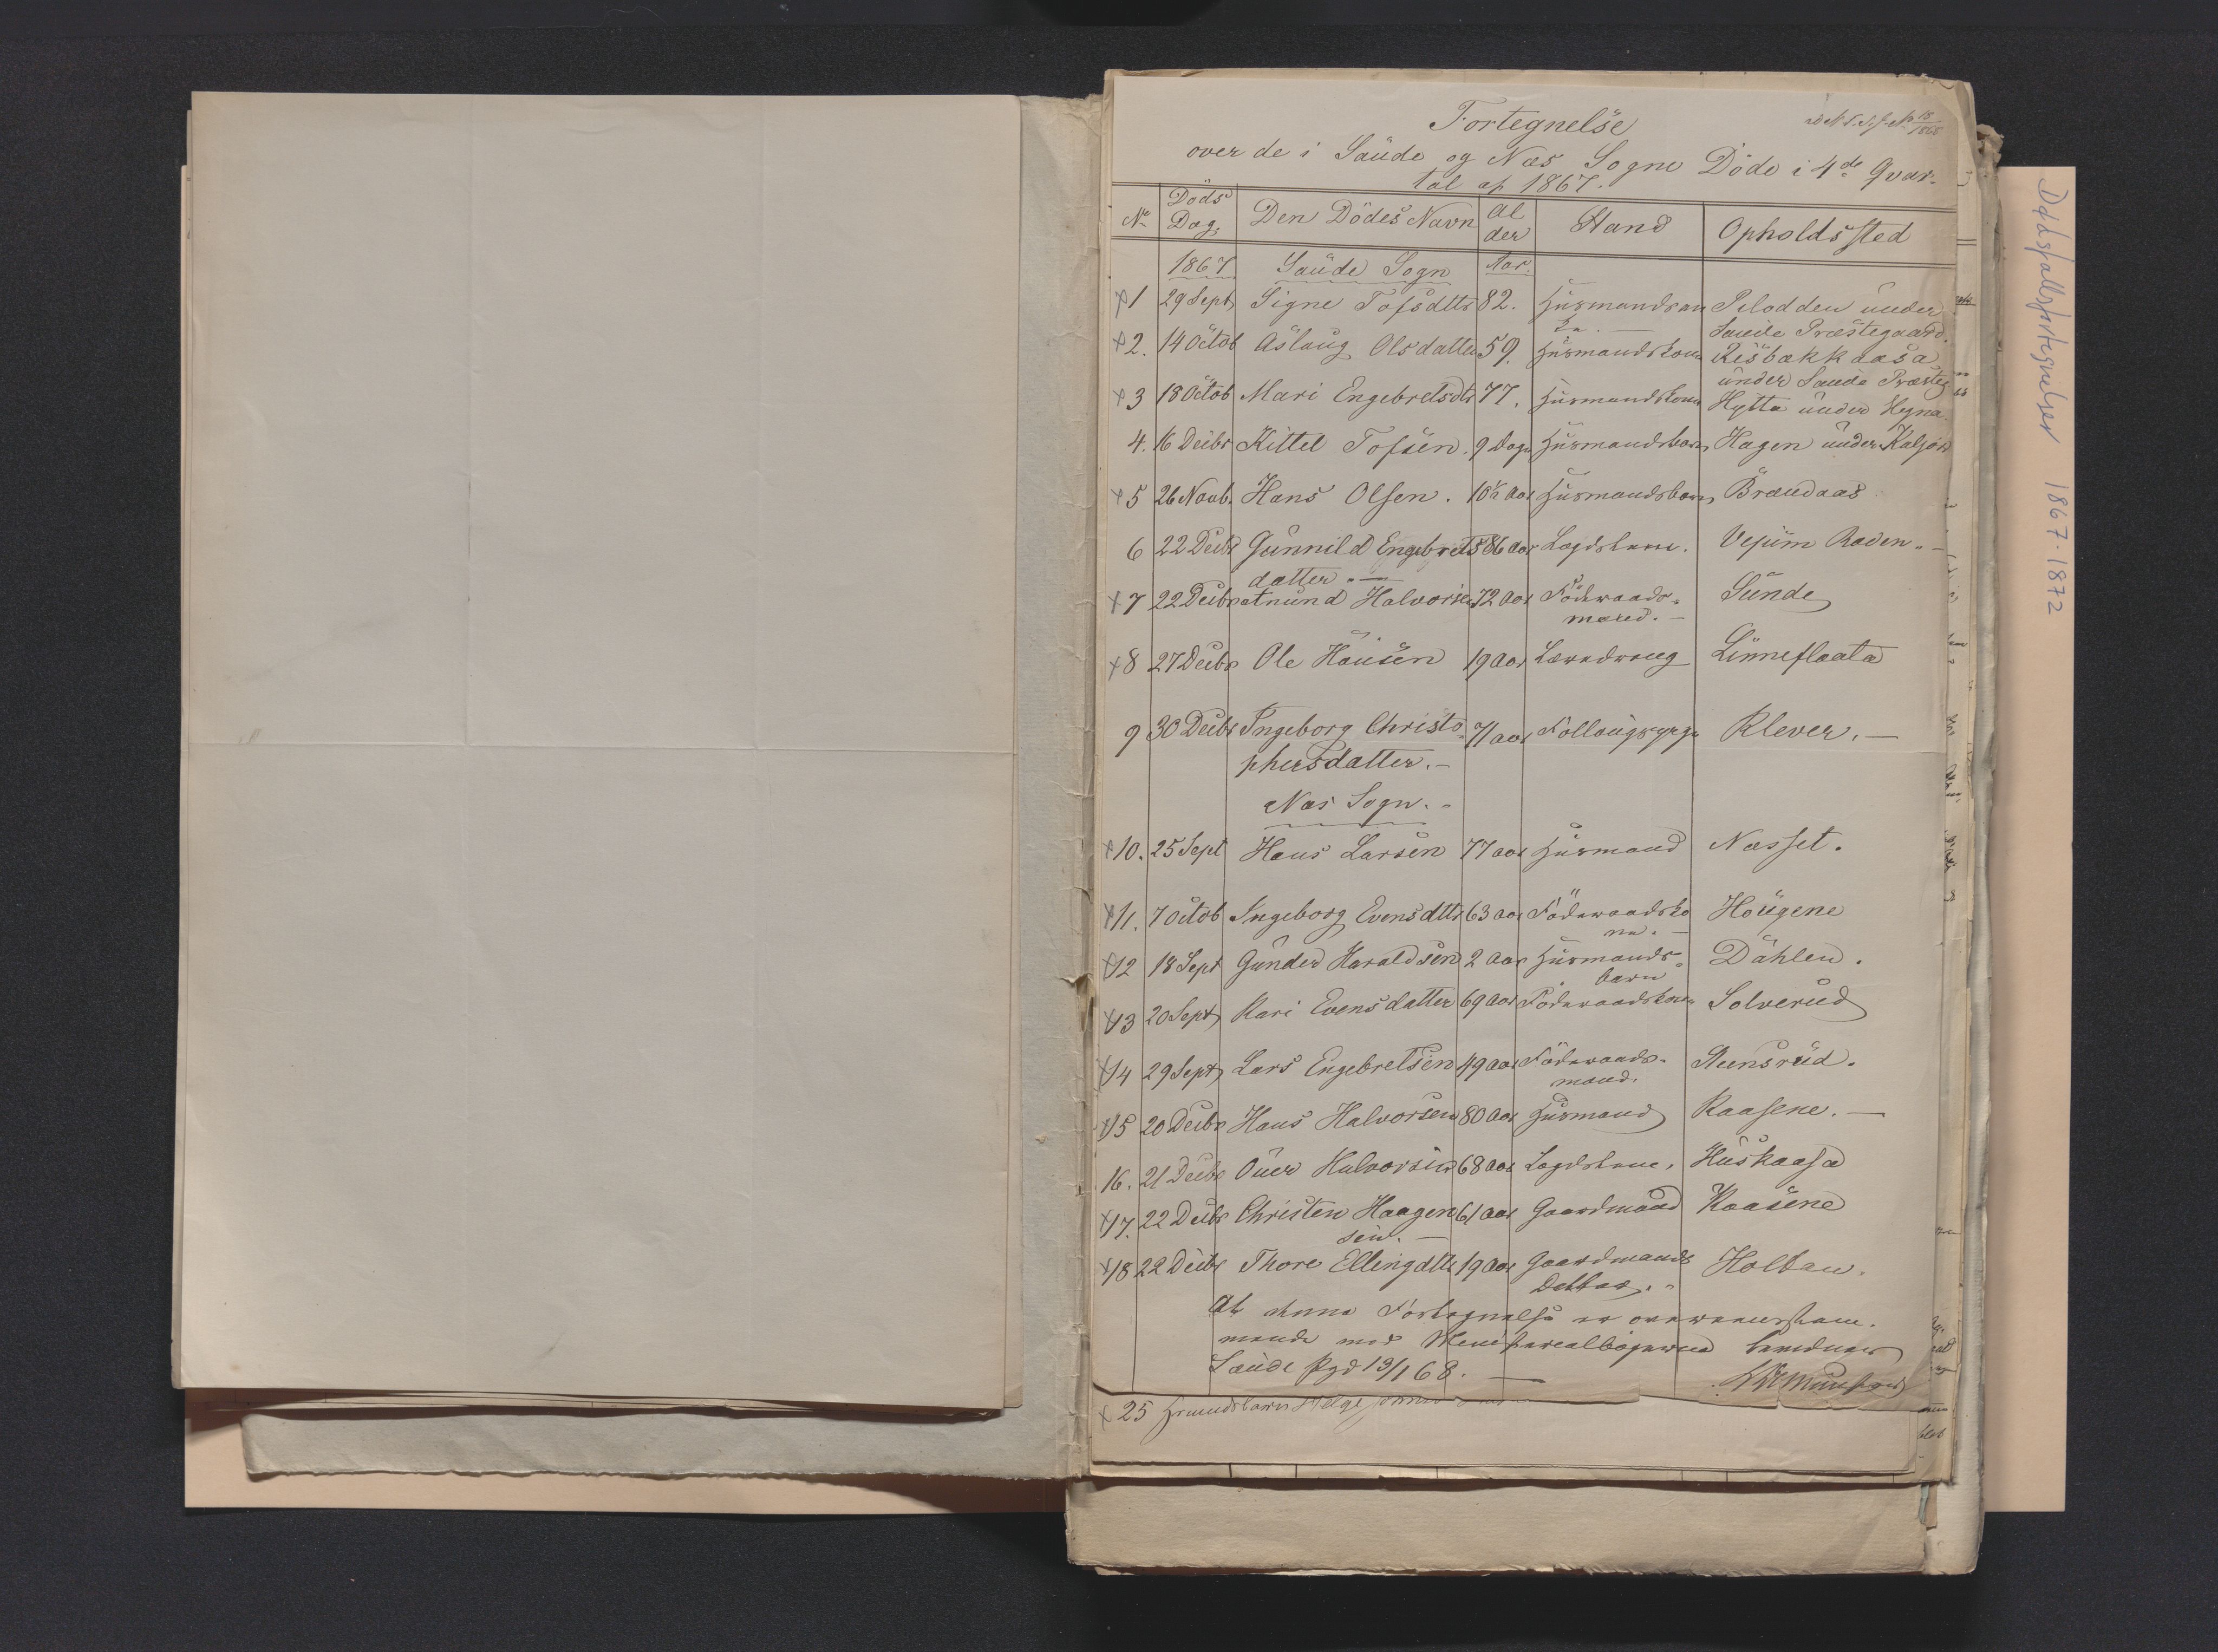 Fortegnelse
over de i Saude og Næs Sogne Døde i 4de Qvar-
tal af 1867.
18/1868
No Døds Dag, Den Dødes Navn Al der Stand Opholdssted
1867 Saude Sogn Aar.
1 29 Sept Signe Tofsdttr 82. Husmandsen Pelodden under
ke. Saude Præstegaard.
2. 14 Octob Aslaug Olsdatter 59. Husmandskone Risbakkaasa
under Saude Præsteg
3 18 Octob Mari Engebretsdtr 77. Husmandskone Hytta under Hegna.
4. 16 Decbr Kittel Tofsen. 9 Dage Husmandsbarn Hagen under
5 26 Novb. Hans Olsen. 10½ Aar Husmandsbarn Brændaas
6 22 Decbr Gunnild Engebrets 86 Aar Lægdslem. Vejum Roden.
datter.
7 22 Decbr Amund Halvorsen 72 Aar Føderaads- Sunde
mand.
8 27 Decbr Ole Hansen 19 Aar Linneflaata
9 30 Decbr Ingeborg Christo- 71 Aar Follaugspige Klever.
phersdatter.
Næs Sogn.
10. 25 Sept Hans Larsen 77 Aar Husmand Næsset.
11. 7 Octob Ingeborg Evensdttr 63 Aar Føderaadsko Hougene
ne.
12 18 Sept Gunder Haraldsen 2 Aar Husmands- Dahlen.
barn
13 20 Sept Kari Evensdatter 69 Aar Føderaadskone Solverud
14 29 Sept Lars Engebretsen 49 Aar Føderaads- Stensrud.
mand.
15 20 Decbr Hans Halvorsen 80 Aar Husmand Kaasene.
16. 21 Decbr Halvorsen 68 Aar Lægdslem. Huskaasa
17. 22 Decbr Christen Haagen 61 Aar Gaardmand Kaasene
sen.
18 22 Decbr Thore Ellingdttr 19 Aar Gaardmands Holtan.
Datter.
At denne Fortegnelse er overeensstem-
mende med Ministerialbøgerne bevidnes
Saude Pgd 13/1 68.
25 Helge
Dødsfallsfortegnelser 1867-1872